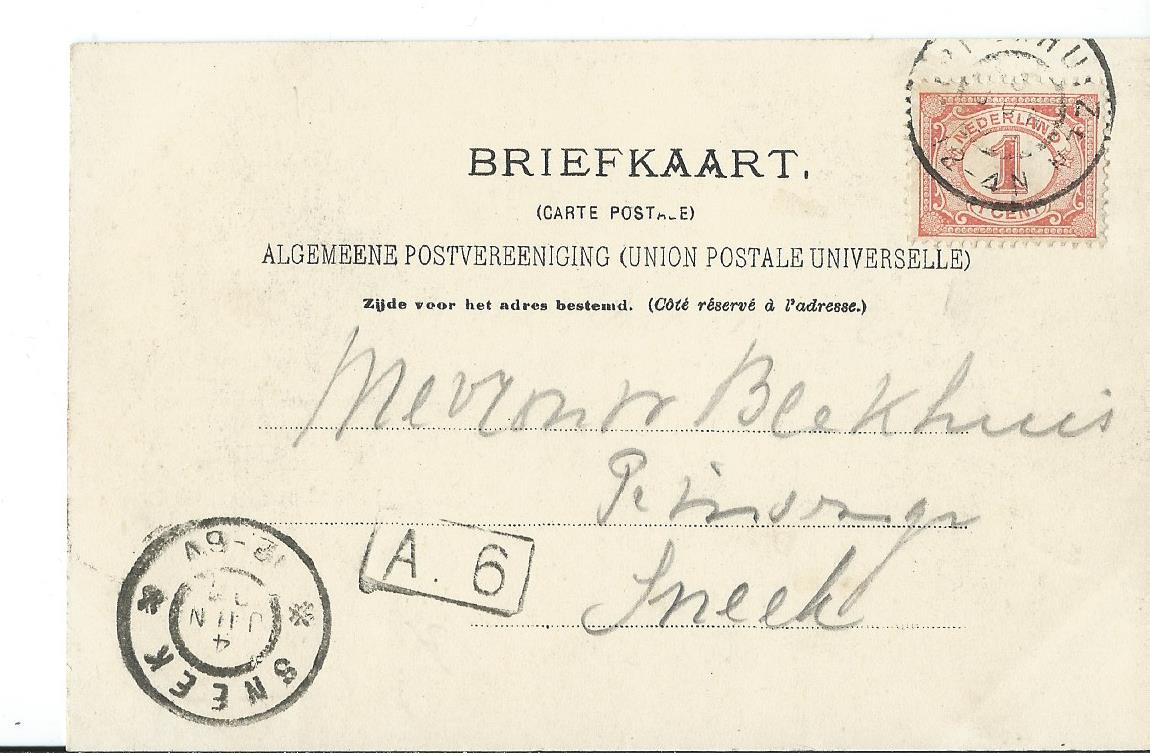 BRIEFKAART.
(CARTE POSTALE)
ALGEMEENE POSTVEREENIGING (UNION POSTALE UNIVERSELLE)
Zijde voor het adres bestemd. (Côté réservé à l'adresse.)
NEDERLAND
1
(1 CENT)
Mevrouw Blekhuis
Sneek
A. 6
12-6V
4
JUN
SNEEK